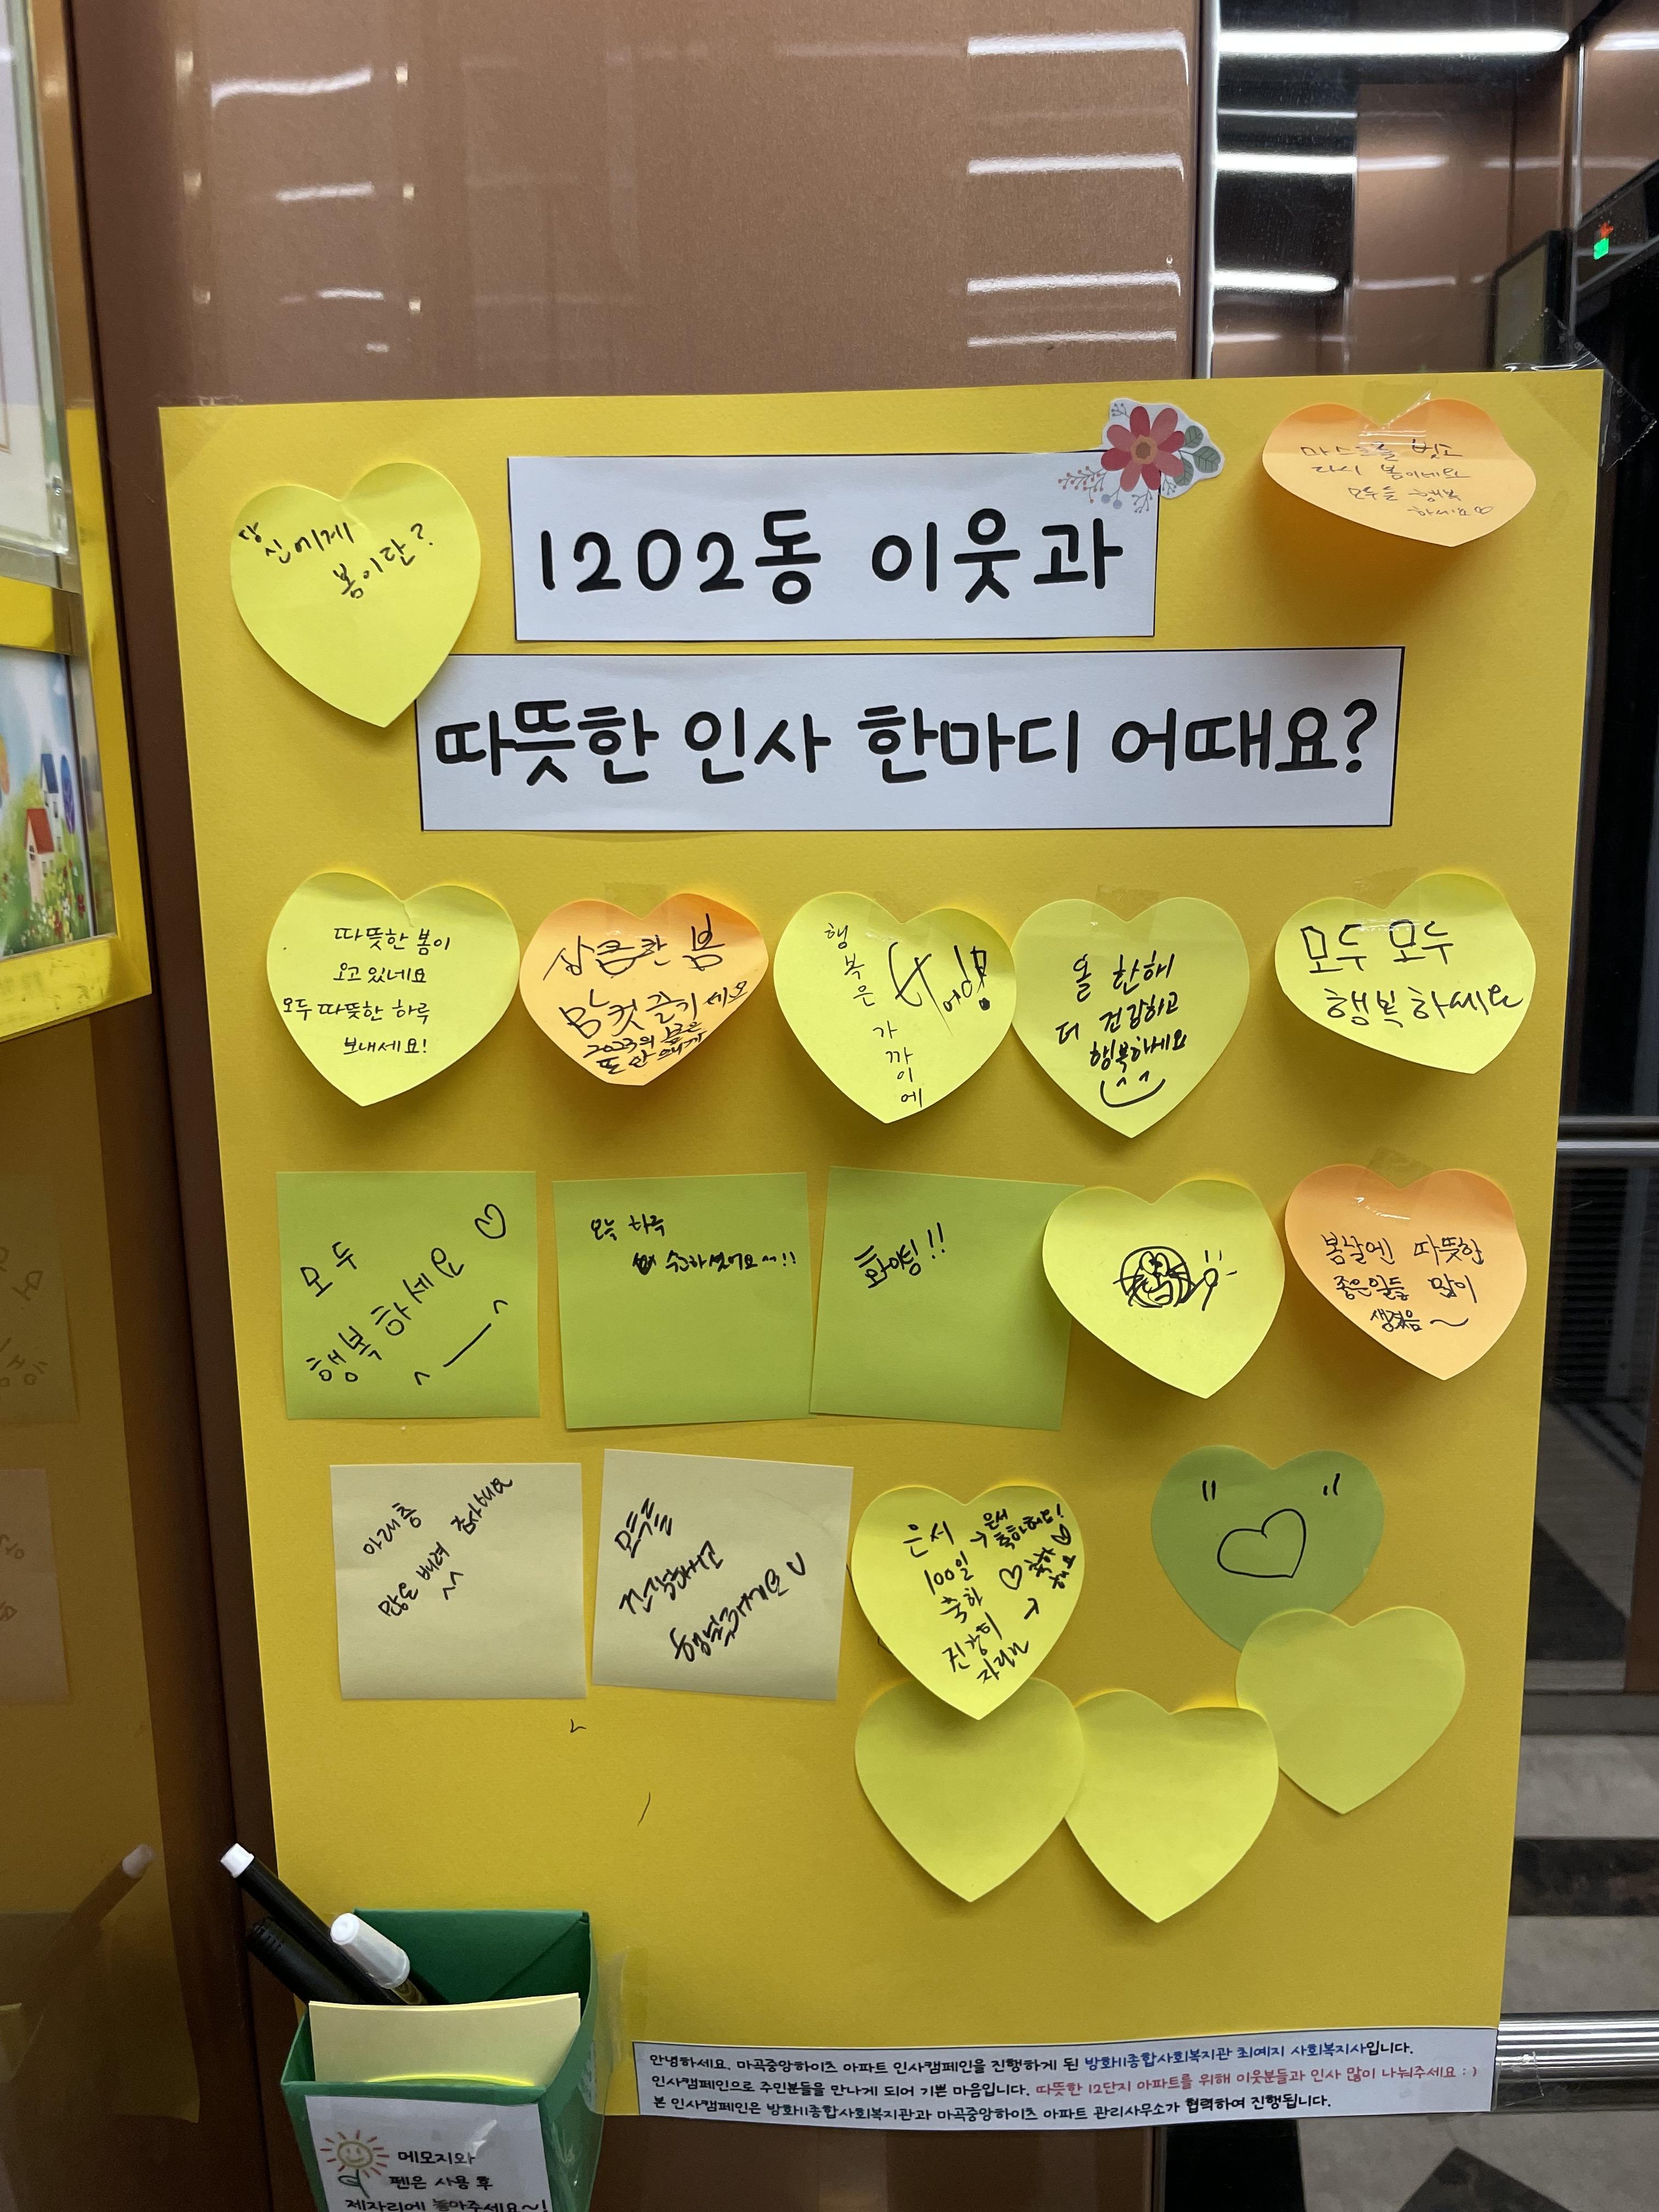 당신에게
봄이란?
1202동 이웃과
마스크를 벗고
다시 봄이네요
모두들 행복
하세요♡
따뜻한 인사 한마디 어때요?
따뜻한 봄이
오고 있네요
모두 따뜻한 하루
보내세요!
상큼한 봄
맘껏 즐기세요
2023의 봄은
또 안 오니까
행복은 가까이에
올 한해
더 건강하고
행복하세요
모두 모두
행복하세요
모두 ♡
행복하세요
^__^
오늘 하루
수고하셨어요~!!
화이팅!!
봄날엔 따뜻한
좋은일들 많이
생겼음~
아래층
많은 배려 감사해요
^^
모두들
건강하시고
행복하세요
은서
100일
축하
→ 은서
축하해요!
♡ 축하
"  "
♡
안녕하세요. 마곡중앙하이츠 아파트 인사캠페인을 진행하게 된 방화11종합사회복지관 최예지 사회복지사입니다.
인사캠페인으로 주민분들을 만나게 되어 기쁜 마음입니다. 따뜻한 12단지 아파트를 위해 이웃분들과 인사 많이 나눠주세요 : )
본 인사캠페인은 방화11종합사회복지관과 마곡중앙하이츠 아파트 관리사무소가 협력하여 진행됩니다.
메모지와
펜은 사용 후
제자리에 놓아주세요~!